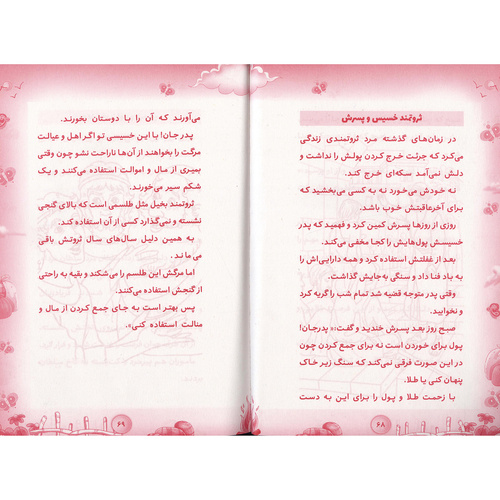 ثروتمند خسیس و پسرش
در زمان‌های گذشته مرد ثروتمندی زندگی
می‌کرد که جرئت خرج کردن پولش را نداشت و
دلش نمی‌آمد سکه‌ای خرج کند.
نه خودش می‌خورد نه به کسی می‌بخشید که
برای آخرعاقبتش خوب باشد.
روزی از روزها پسرش کمین کرد و فهمید که پدر
خسیسش پول‌هایش را کجا مخفی می‌کند.
بعد از غفلتش استفاده کرد و همه دارایی‌اش را
به باد فنا داد و سنگی به‌جایش گذاشت.
وقتی پدر متوجه قضیه شد تمام شب را گریه کرد
و نخوابید.
صبح روز بعد پسرش خندید و گفت:«پدرجان!
پول برای خوردن است نه برای جمع کردن چون
در این صورت فرقی نمی‌کند که سنگ زیر خاک
پنهان کنی یا طلا.
با زحمت طلا و پول را برای این به دست
۶۸
می‌آورند که آن را با دوستان بخورند.
پدرجان! با این خسیسی تو اگر اهل و عیالت
مرگت را بخواهند از آن‌ها ناراحت نشو چون وقتی
بمیری از مال و اموالت استفاده می‌کنند و یک
شکم سیر می‌خورند.
ثروتمند بخیل مثل طلسمی است که بالای گنجی
نشسته و نمی‌گذارد کسی از آن استفاده کند.
به همین دلیل سال‌های سال ثروتش باقی
می‌ماند.
اما مرگش این طلسم را می‌شکند و بقیه به راحتی
از گنجش استفاده می‌کنند.
پس بهتر است به جای جمع کردن از مال و
منالت استفاده کنی».
۶۹